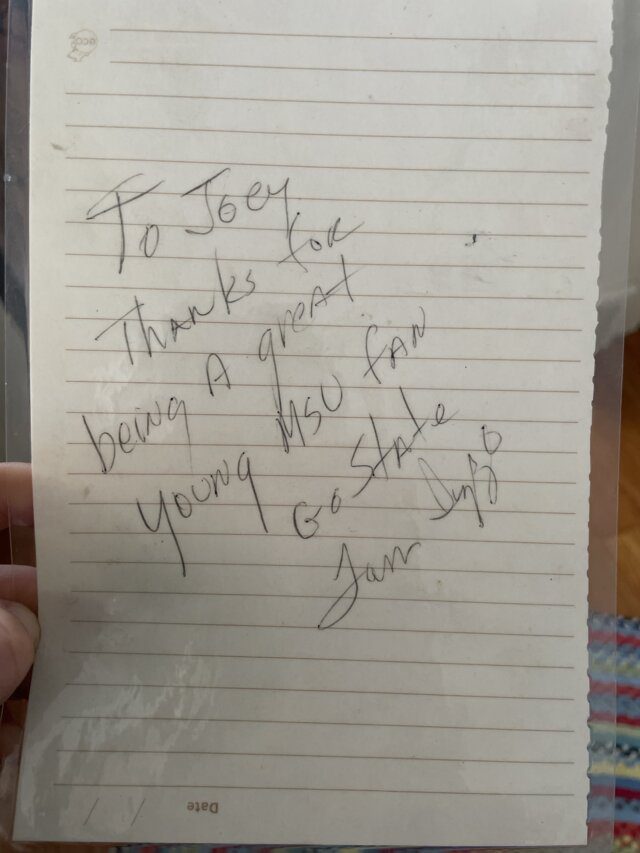 eco
To Joey
Thanks for
being A great
Young MSU fan
Go State
Date / /